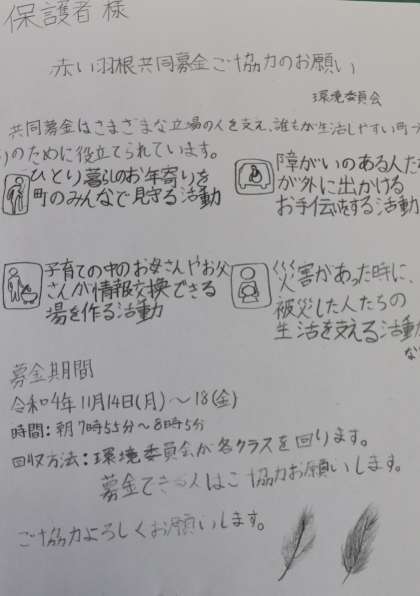 保護者様
赤い羽根共同募金ご協力のお願い
環境委員会
共同募金はさまざまな立場の人を支え、誰もが生活しやすい町づ
りのために役立てられています。
ひとり暮らしのお年寄りを
町のみんなで見守る活動
障がいのある人た
が外に出かける
お手伝いをする活動
子育ての中のお母さんやお父
さんが情報交換できる
場を作る活動
災害があった時に、
被災した人たちの
生活を支える活動
な
募金期間
令和4年11月14日(月)～18(金)
時間:朝7時55分～8時5分
回収方法:環境委員会が各クラスを回ります。
募金できる人はご協力お願いします。
ご協力よろしくお願いします。